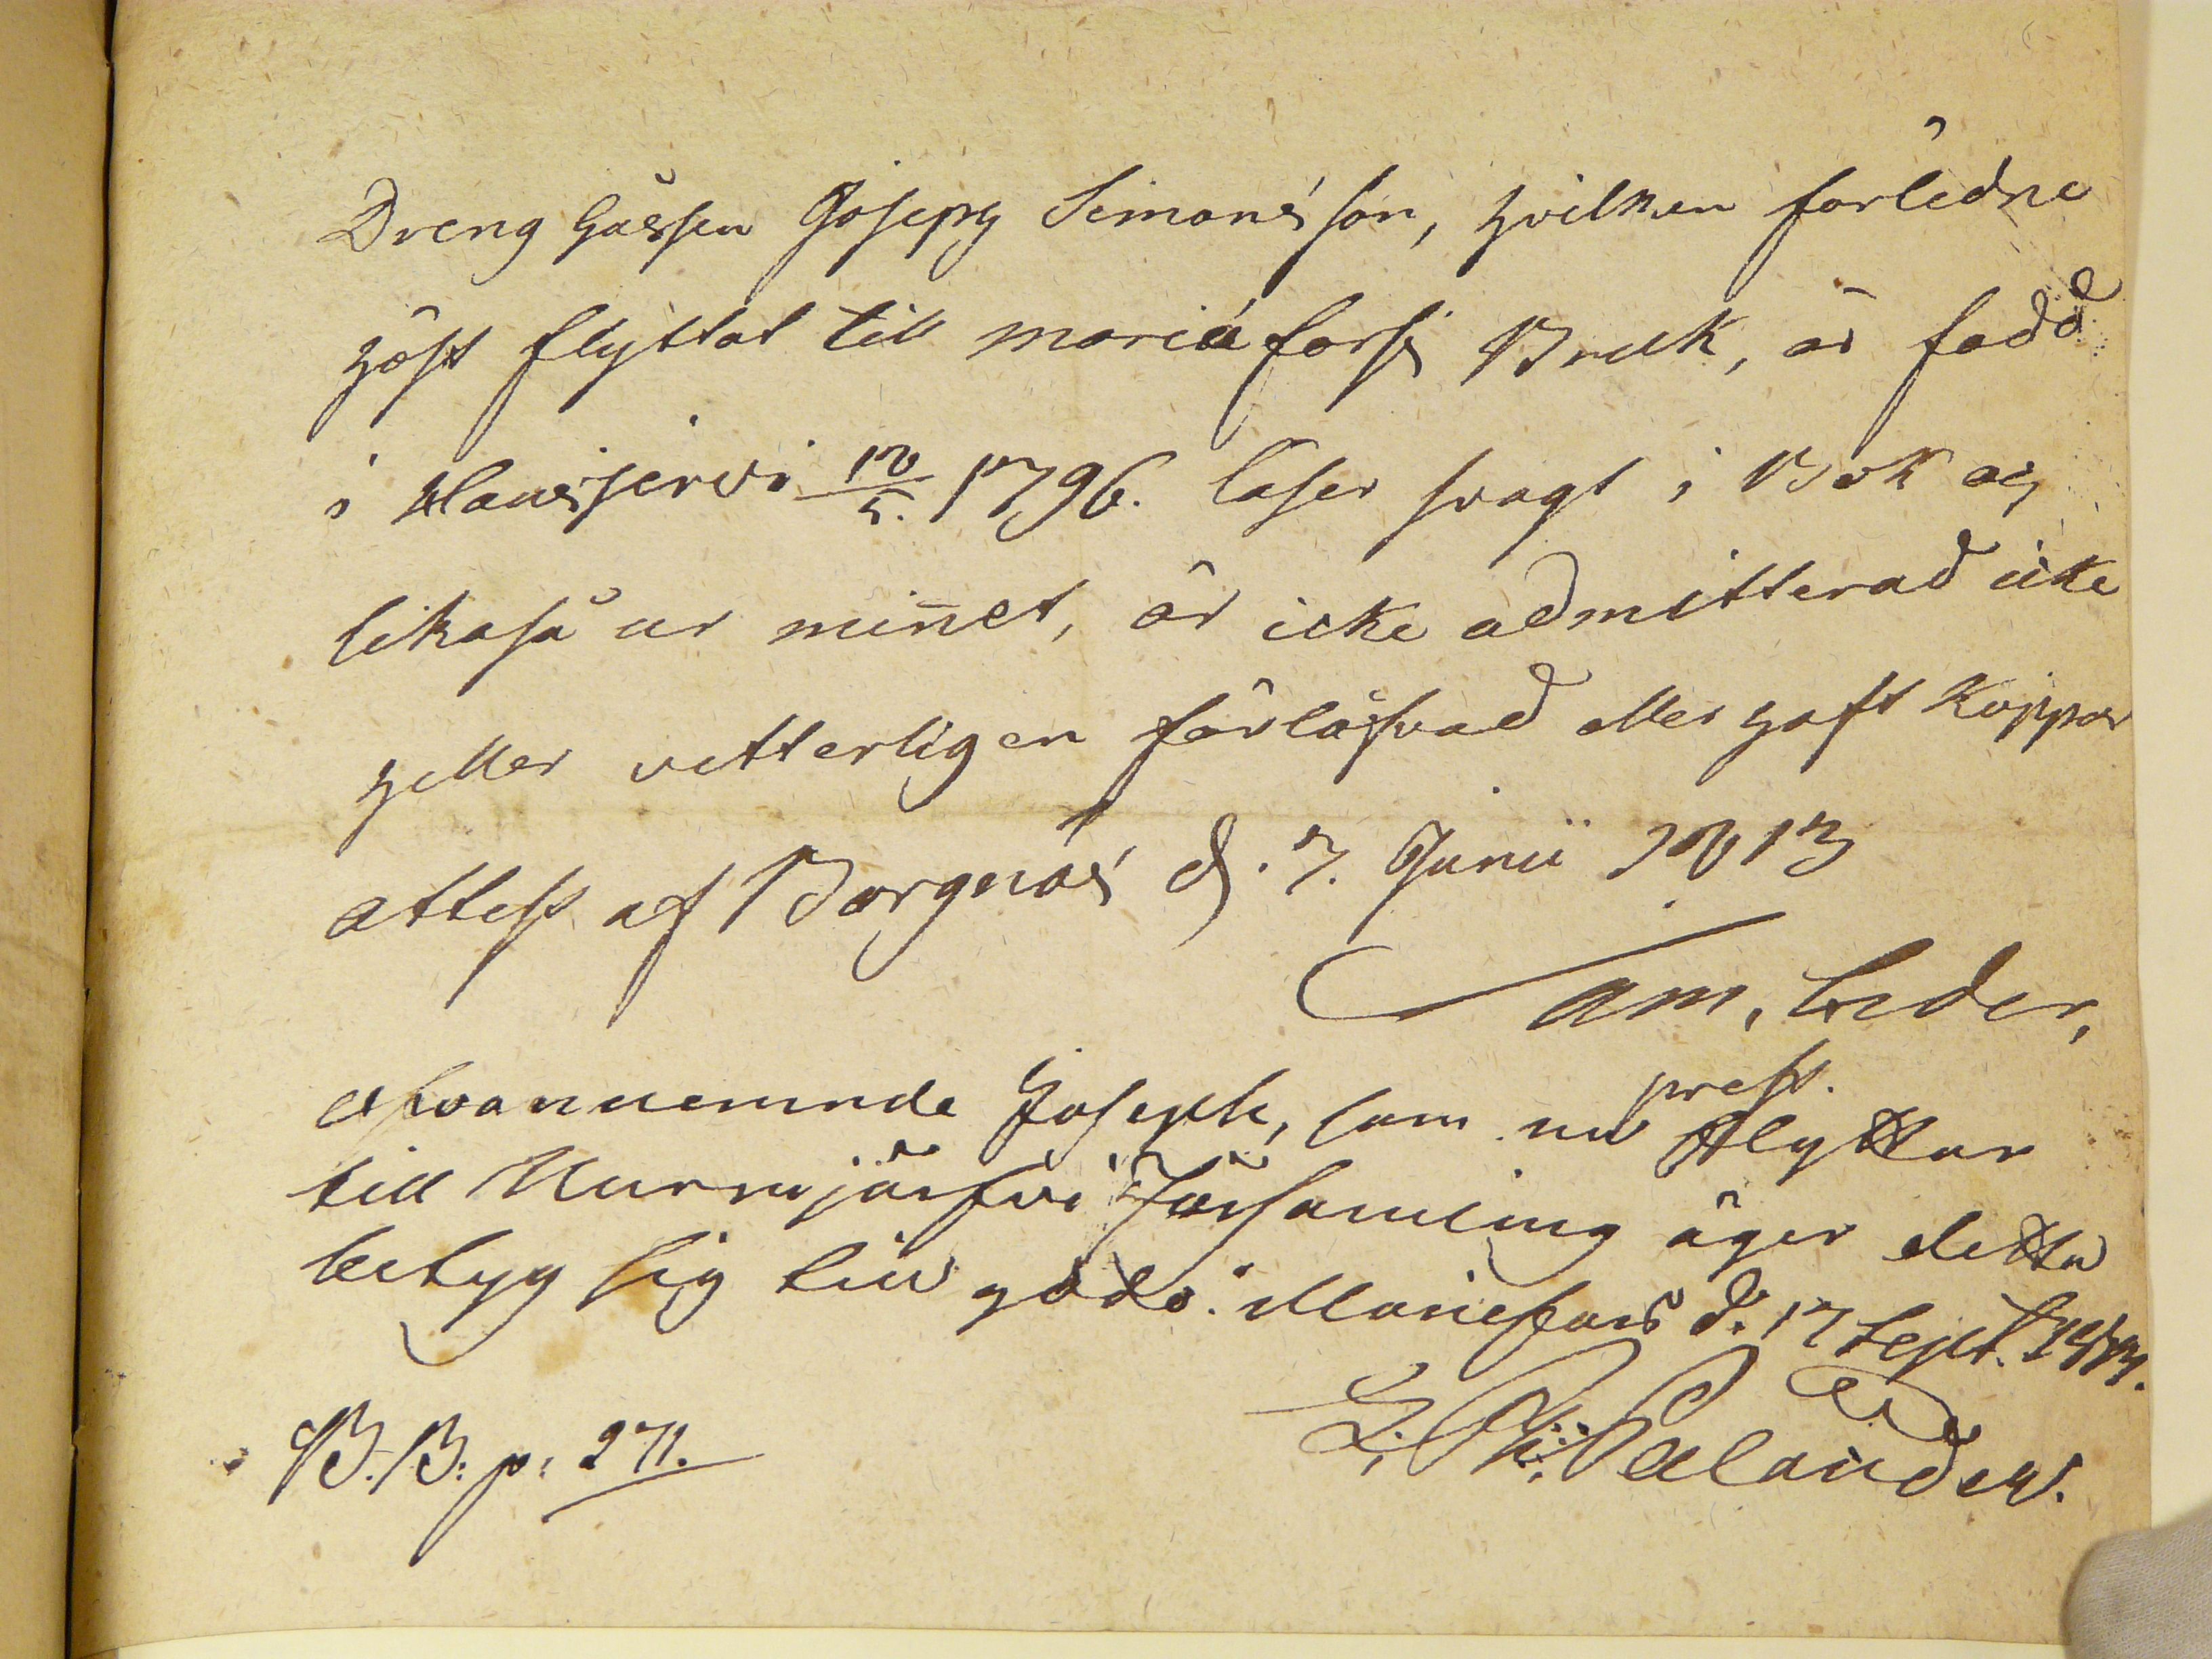 Dreng Gåssen Joseph Simonsson, hvilken förledne
höst flyttat till mariæfors Bruk, är född
i Hausjervi 18/5. 1796. läser svagt i Bok och
likaså ur min̄et, är icke admitterad icke
heller vetterligen förlåfvad eller haft Koppor
attest. af Borgnäs d. 7. Junii 1813
Sam, Ceder,
prest.
Ofvannemnde Joseph, som nu flyttar
till Nurmijärfvi Församling äger detta
betyg sig till godo. Mariefors d. 17 Sept. 1813.
Palander.
B. B: p: 271.